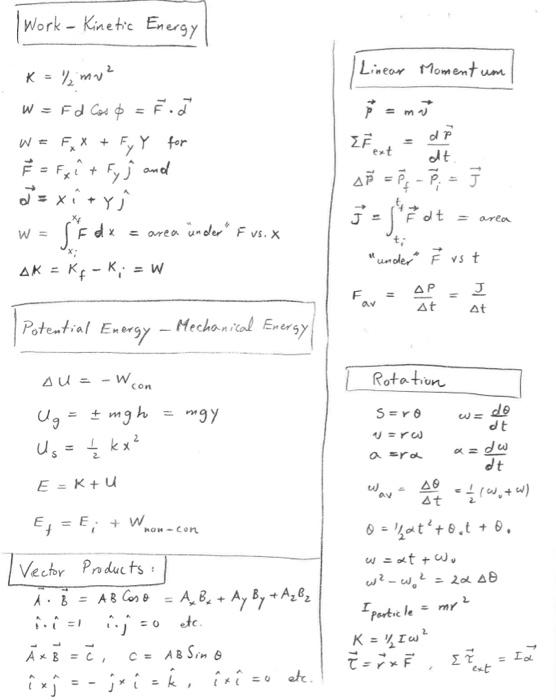 Work - Kinetic Energy
K = 1/2 mv²
W = Fd Cos φ = F⃗ · d⃗
W = Fₓ X + F_y Y for
F⃗ = Fₓ î + F_y ĵ and
d⃗ = X î + Y ĵ
W = ∫_{x_i}^{x_f} F dx = area "under" F vs. X
ΔK = K_f - K_i = W
Potential Energy - Mechanical Energy
ΔU = - W_con
U_g = ± mgh = mgy
U_s = 1/2 kx²
E = K + U
E_f = E_i + W_non-con
Vector Products :
A⃗ · B⃗ = AB Cos θ = AₓBₓ + A_y B_y + A_z B_z
î · î = 1 î · ĵ = 0 etc.
A⃗ × B⃗ = C⃗ , C = AB Sin θ
î × ĵ = - ĵ × î = k̂ , î × î = 0 etc.
Linear Momentum
p⃗ = m v⃗
ΣF⃗_ext = dP⃗/dt
ΔP⃗ = P⃗_f - P⃗_i = J⃗
J⃗ = ∫_{t_i}^{t_f} F⃗ dt = area
"under" F⃗ vs t
F_av = ΔP/Δt = J/Δt
Rotation
S = rθ ω = dθ/dt
v = rω
a = rα α = dω/dt
ω_av = Δθ/Δt = 1/2 (ω₀ + ω)
θ = 1/2 αt² + θ₀t + θ₀
ω = αt + ω₀
ω² - ω₀² = 2α Δθ
I_particle = mr²
K = 1/2 Iω²
τ⃗ = r⃗ × F⃗ , Στ⃗_ext = Iα⃗